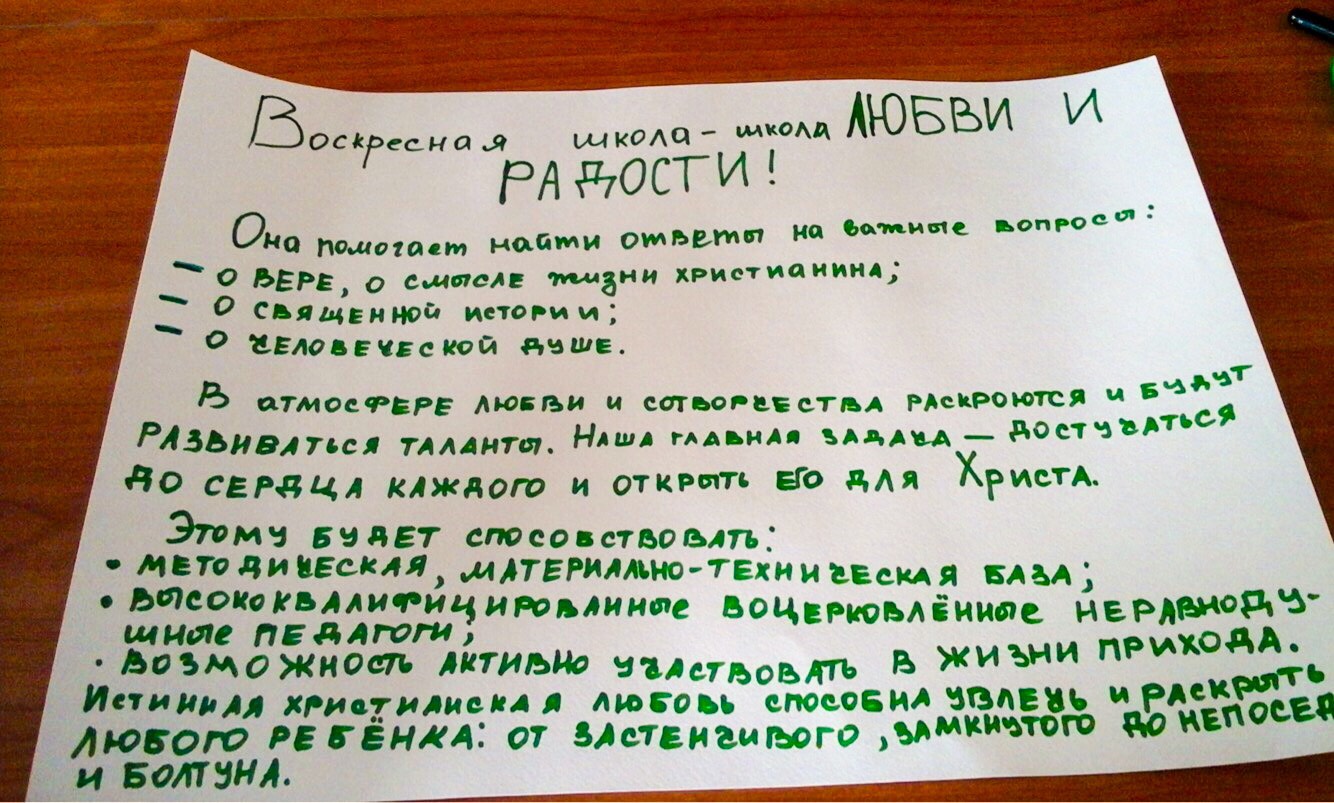 Воскресная школа - школа ЛЮБВИ И
РАДОСТИ!
Она помогает найти ответы на важные вопросы:
- О ВЕРЕ, О СМЫСЛЕ ЖИЗНИ ХРИСТИАНИНА;
- О СВЯЩЕННОЙ ИСТОРИИ;
- О ЧЕЛОВЕЧЕСКОЙ ДУШЕ.
В АТМОСФЕРЕ ЛЮБВИ И СОТВОРЧЕСТВА РАСКРОЮТСЯ И БУДУТ
РАЗВИВАТЬСЯ ТАЛАНТЫ. НАША ГЛАВНАЯ ЗАДАЧА — ДОСТУЧАТЬСЯ
ДО СЕРДЦА КАЖДОГО И ОТКРЫТЬ ЕГО ДЛЯ ХРИСТА.
ЭТОМУ БУДЕТ СПОСОБСТВОВАТЬ:
• МЕТОДИЧЕСКАЯ, МАТЕРИАЛЬНО-ТЕХНИЧЕСКАЯ БАЗА;
• ВЫСОКОКВАЛИФИЦИРОВАННЫЕ ВОЦЕРКОВЛЁННЫЕ НЕРАВНОДУ-
ШНЫЕ ПЕДАГОГИ;
• ВОЗМОЖНОСТЬ АКТИВНО УЧАСТВОВАТЬ В ЖИЗНИ ПРИХОДА.
ИСТИННАЯ ХРИСТИАНСКАЯ ЛЮБОВЬ СПОСОБНА УВЛЕЧЬ И РАСКРЫТЬ
ЛЮБОГО РЕБЁНКА: ОТ ЗАСТЕНЧИВОГО, ЗАМКНУТОГО ДО НЕПОСЕД
И БОЛТУНА.